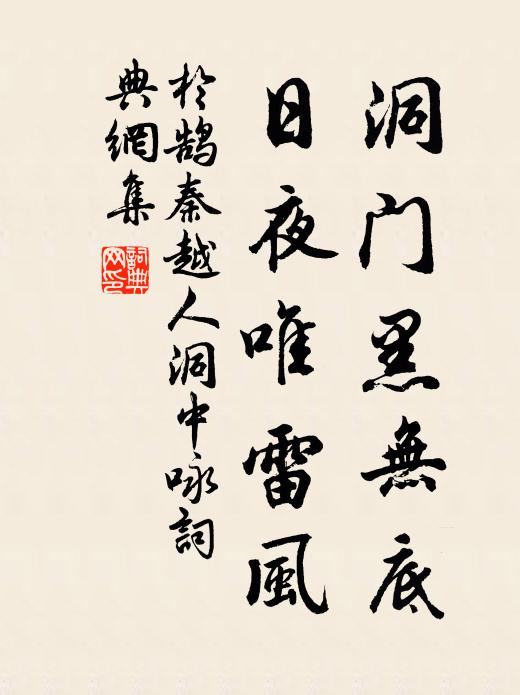 洞門黑無底
日夜唯雷風
於鵠秦越人洞中咏詞
典網集
詞典
网印